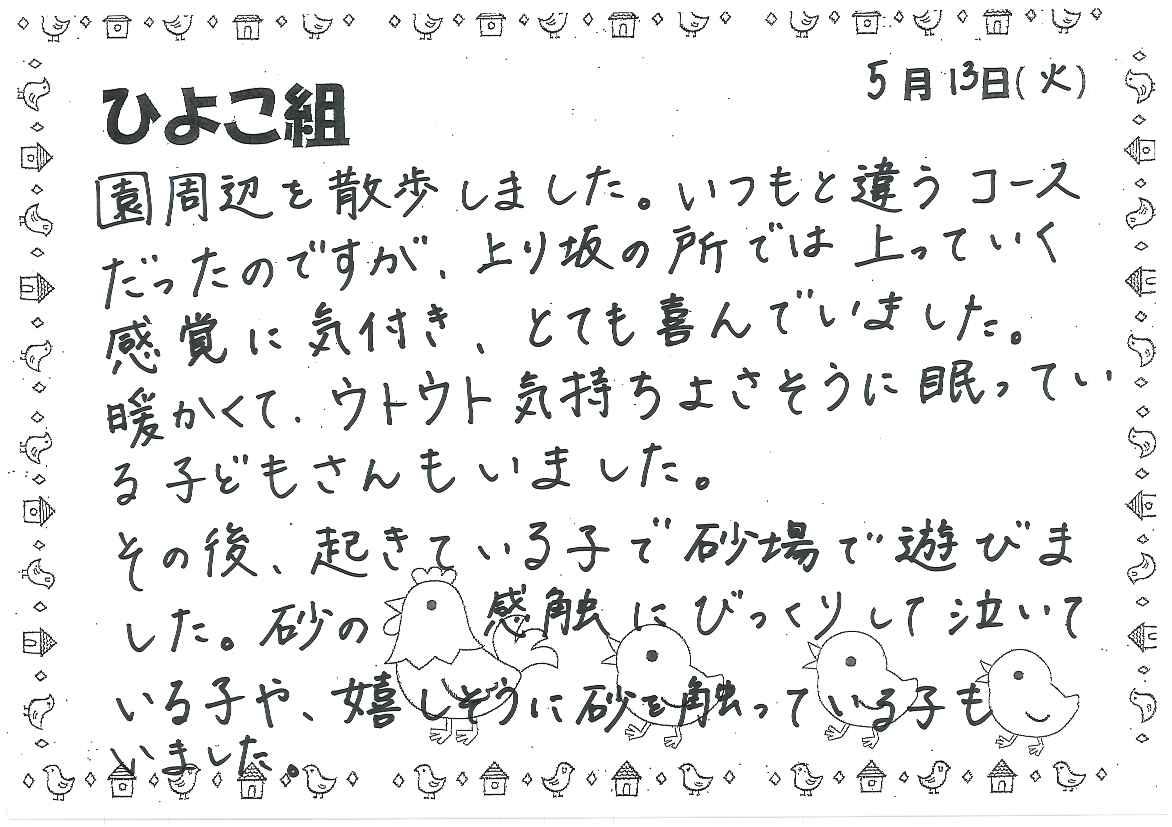 5月13日(火)
ひよこ組
園周辺を散歩しました。いつもと違うコース
だったのですが、上り坂の所では上っていく
感覚に気付き、とても喜んでいました。
暖かくて、ウトウト気持ちよさそうに眠ってい
る子どもさんもいました。
その後、起きている子で砂場で遊びま
した。砂の感触にびっくりして泣いて
いる子や、嬉しそうに砂を触っている子も
いました。